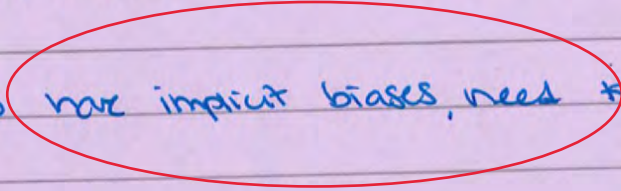 have implicit biases, need